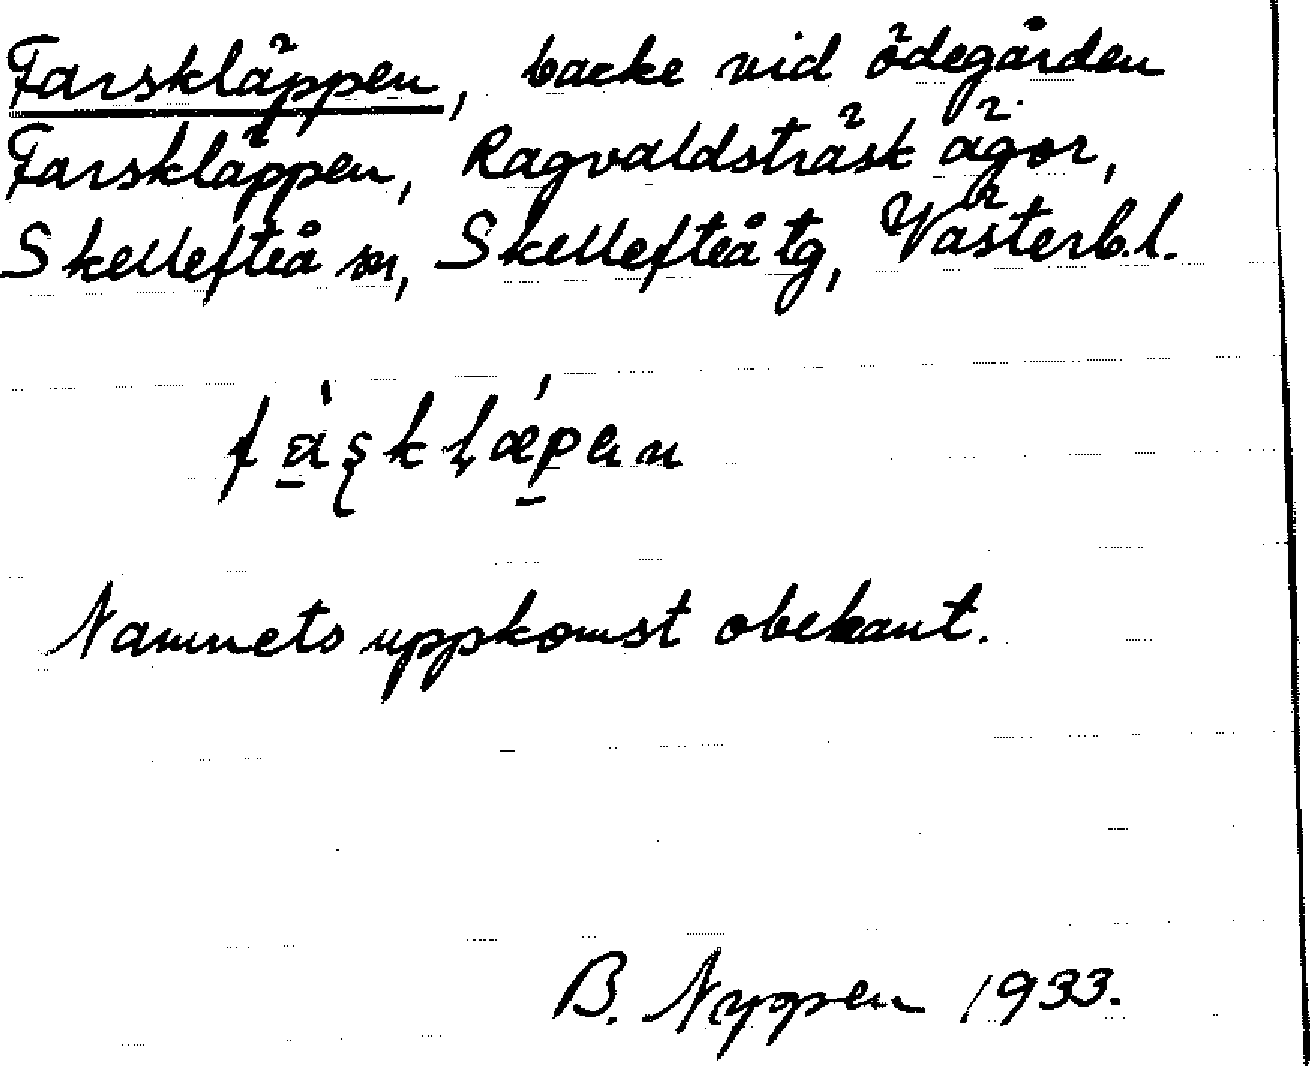 Farskläppen, backe vid ödegården
Farskläppen, Ragvaldsträsk ägor,
Skellefteå sn, Skellefteå tg, Västerb.l.
Namnets uppkomst obekant.
B. Nygren 1933.